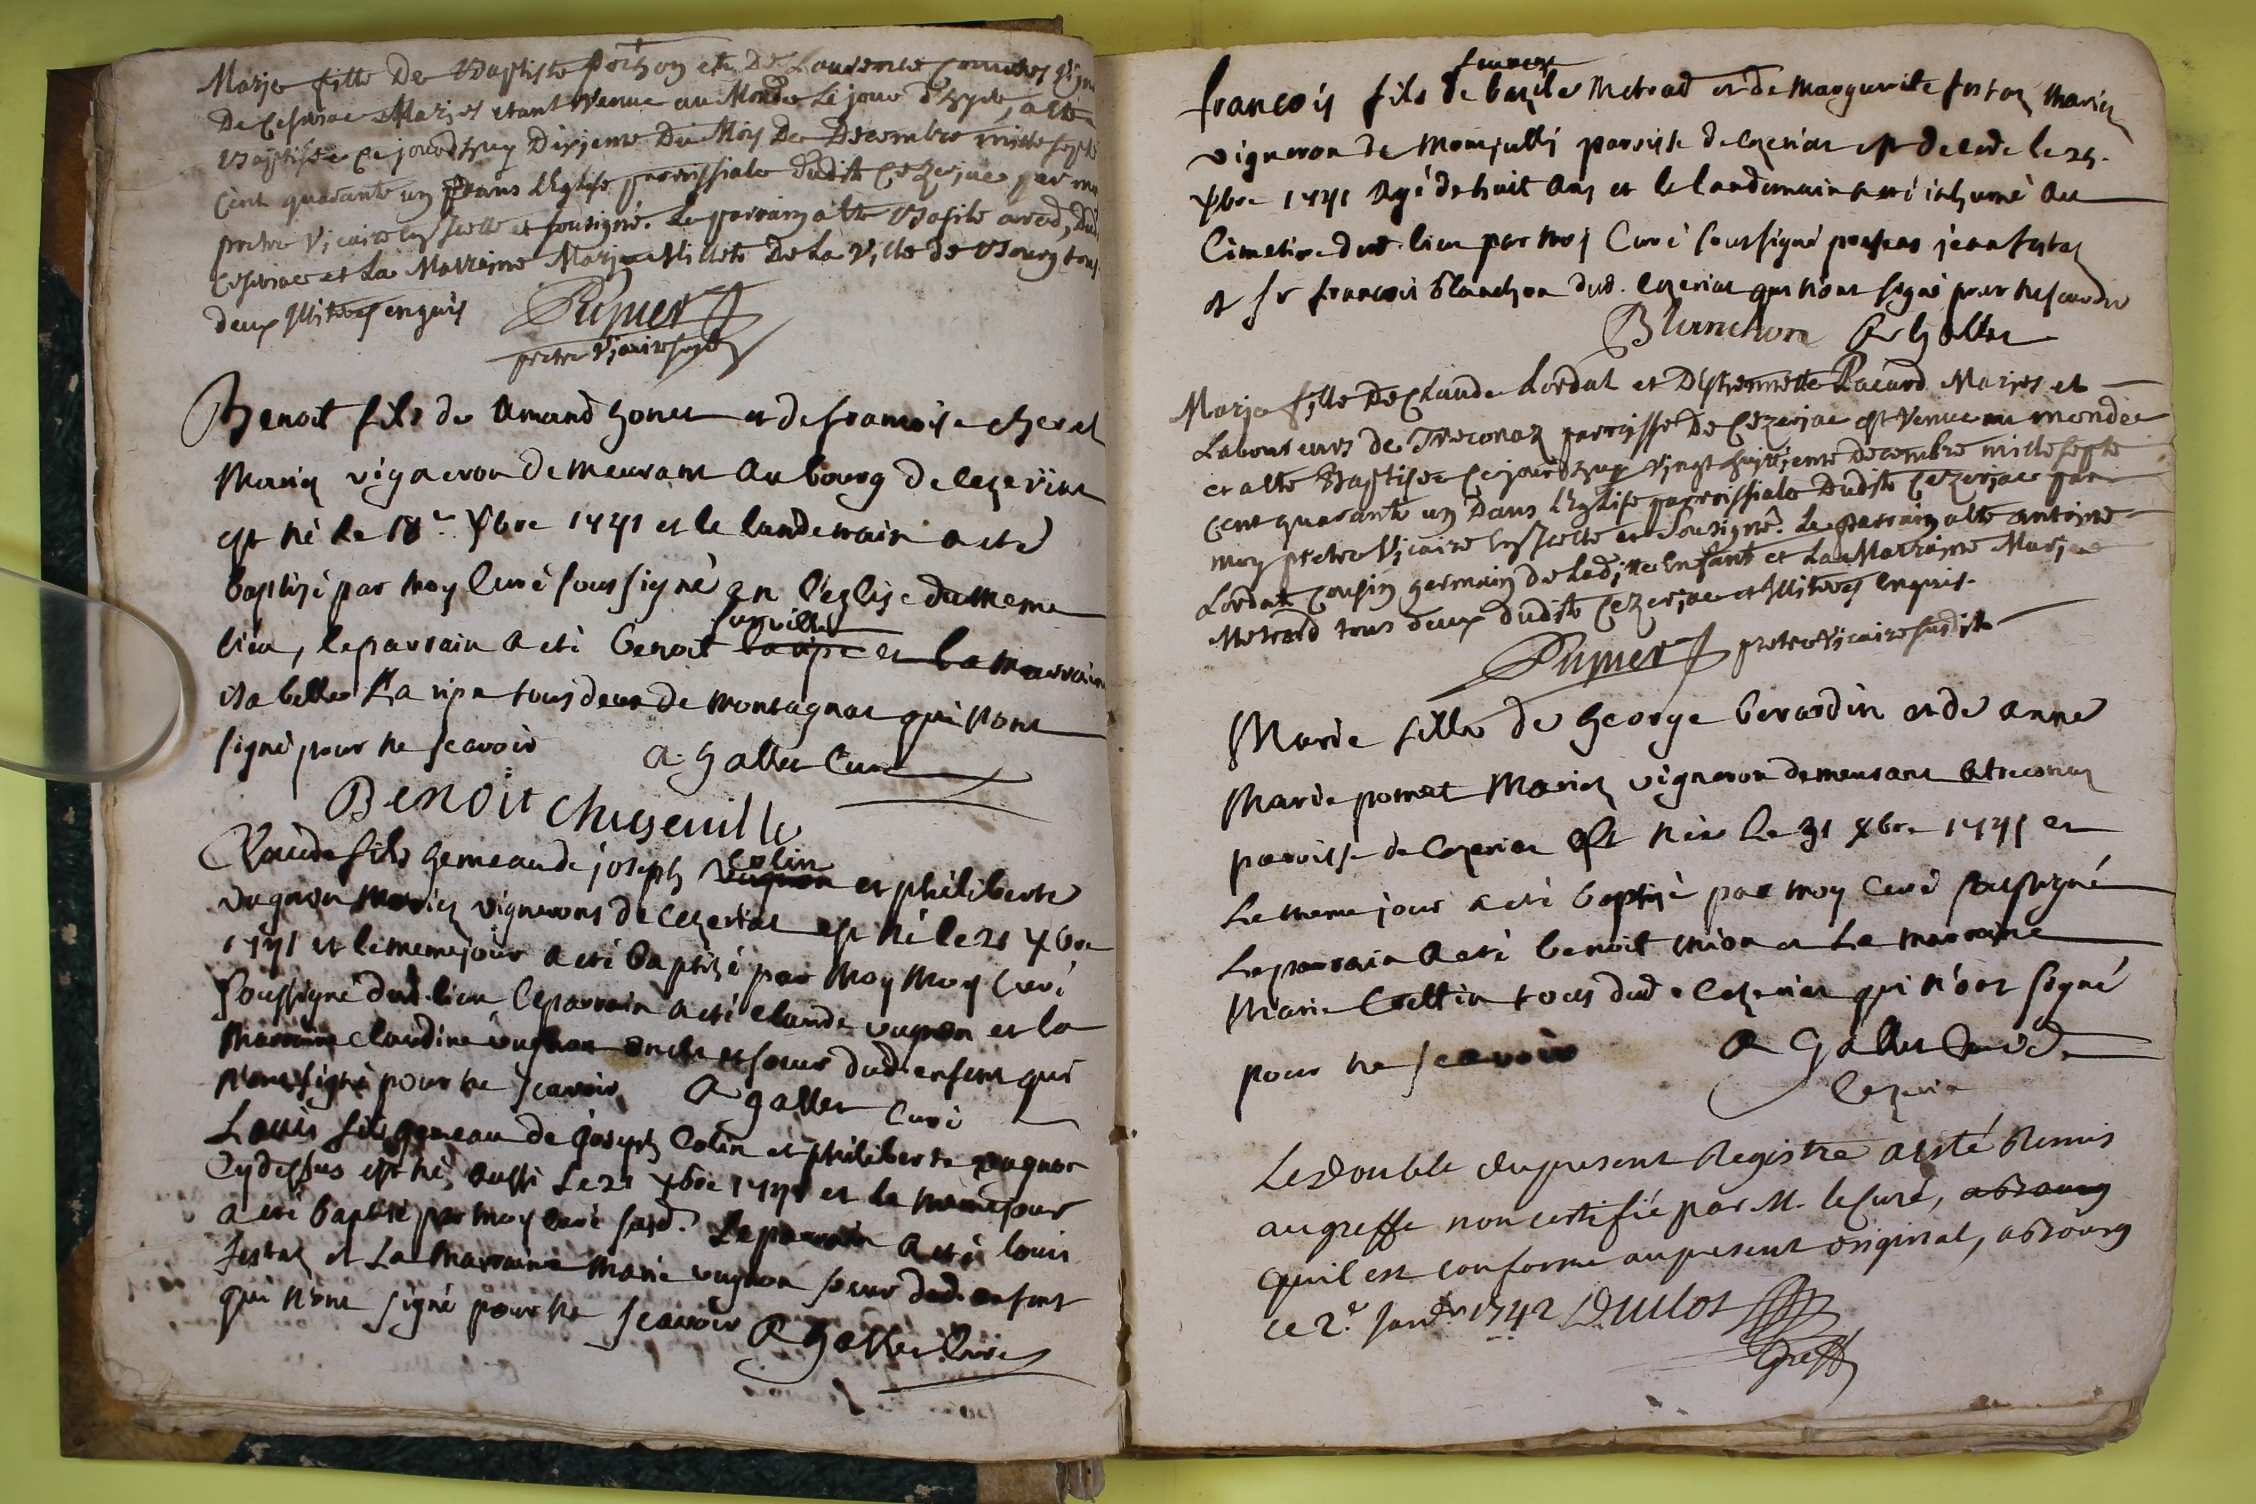 Marje fille De Baptiste pochon et De Laurence
De Ceseriac Marjes etant Venue au Monde Le jour d'hyer, a ete
Baptisée Ce jourd'huy Dixjeme Du Moy De Decembre mille sept
Cent quarante un Dans L'Eglise parroissiale Dudit Cezerjac par moy
pretre Vjcaire et sousigné. Le parrain a ete Basile
Ceseriac et La Marraine Marje Millet De La Ville de Bourg tous
deux Illiteres enquis
pretre Vjcaire susdit
Benoit fils de amand et de francoise
Mariez vigneron demeurant au bourg de cezeriat
est né le 18e xbre 1741 et le landemain a eté
baptizé par moy Curé soussigné en l'eglise du meme
lieu, le parrain a eté benoit la ripe et la marraine
isabelle La ripe tous deux de montagnat qui n'ont
signé pour ne scavoir A. Gallet Curé
BENOIT
Claude fils gemeau de joseph Colin et philiberte
vugnon Mariez vignerons de cezeriat est né le 21 xbre
1741 et le meme jour a eté baptizé par moy moy Curé
soussigné dud. lieu le parrain a eté claude vugnon et la
marraine claudine vugnon oncle et soeur dud. enfant qui
n'ont signé pour ne scavoir A Gallet Curé
Louis fils gemeau de joseph Colin et philiberte vugnon
Cydessus est né aussi le 21 xbre 1741 et le meme jour
a eté baptisé par moy curé susd. Le parrain a eté louis
festaz et La marraine marie vugnon soeur dud. enfant
qui n'ont signé pour ne scavoir A Gallet Curé
francois fils de bazile Metrad et de marguerite festaz mariez
vigneron de paroisse de cezeriat est decedé le 25.
xbre 1741 agé de huit ans et le landemain a eté inhumé au
Cimetire dud. lieu par moy Curé soussigné presens jean festaz
et sr francois blanchon dud. cezeriat qui n'ont signé pour ne scavoir
Blanchon A Gallet
Marje fille De Claude Lordat et D'Estiennette Pacard Marjes et
Laboureurs de Treconaz parroisse De Cezerjac est Venue au monde
et a ete Baptisee Ce jourd'huy Vjngt huittjeme Decembre mille sept
Cent quarante un Dans L'Eglise parroissiale Dudit Cezerjac par
moy pretre Vjcaire et Sousigné. Le parrain a ete antoine
Lordat Cousin germain de Ladjtte Enfant et La Marraine Marje
Metrard tous deux dudit Cezerjac et Illiteres Enquis.
pretre Vjcaire susdit
Marie fille de George berardin et de anne
Marie pomet Mariez vigneron demeurant a treconaz
paroisse de cezeriat est née Le 31 xbre 1741 et
Le meme jour a eté baptizé par moy Curé soussigné
Le parrain a eté benoit et La marraine
Marie Colin tous dud. Cezeriat qui n'ont signé
pour ne scavoir A Gallet Curé de
Cezeria
Le Double du present Registre a esté Remis
au greffe non certifié par M. le Curé, a bourg
quil est conforme au present original, a bourg
ce 2e Janvr 1742 Duclos
Greff